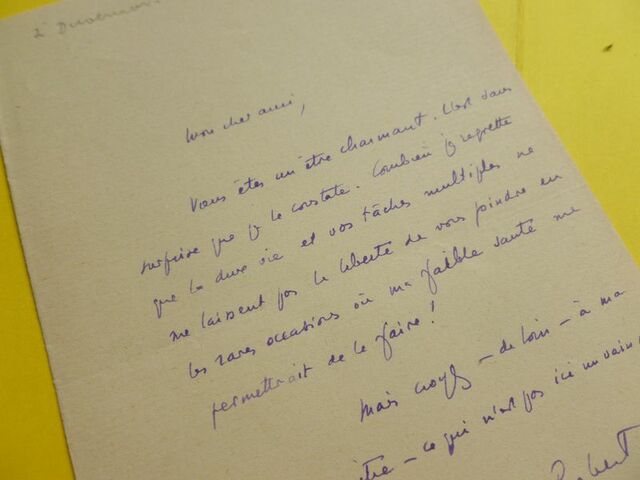 Mon cher ami,
Vous êtes un être charmant. C'est sans
surprise que je le constate. Combien je regrette
que la dure vie et vos tâches multiples ne
me laissent pas la liberté de vous joindre en
les rares occasions où ma faible santé me
permettrait de le faire !
Mais croyez - de loin - à ma
- ce qui n'est pas ici un vain